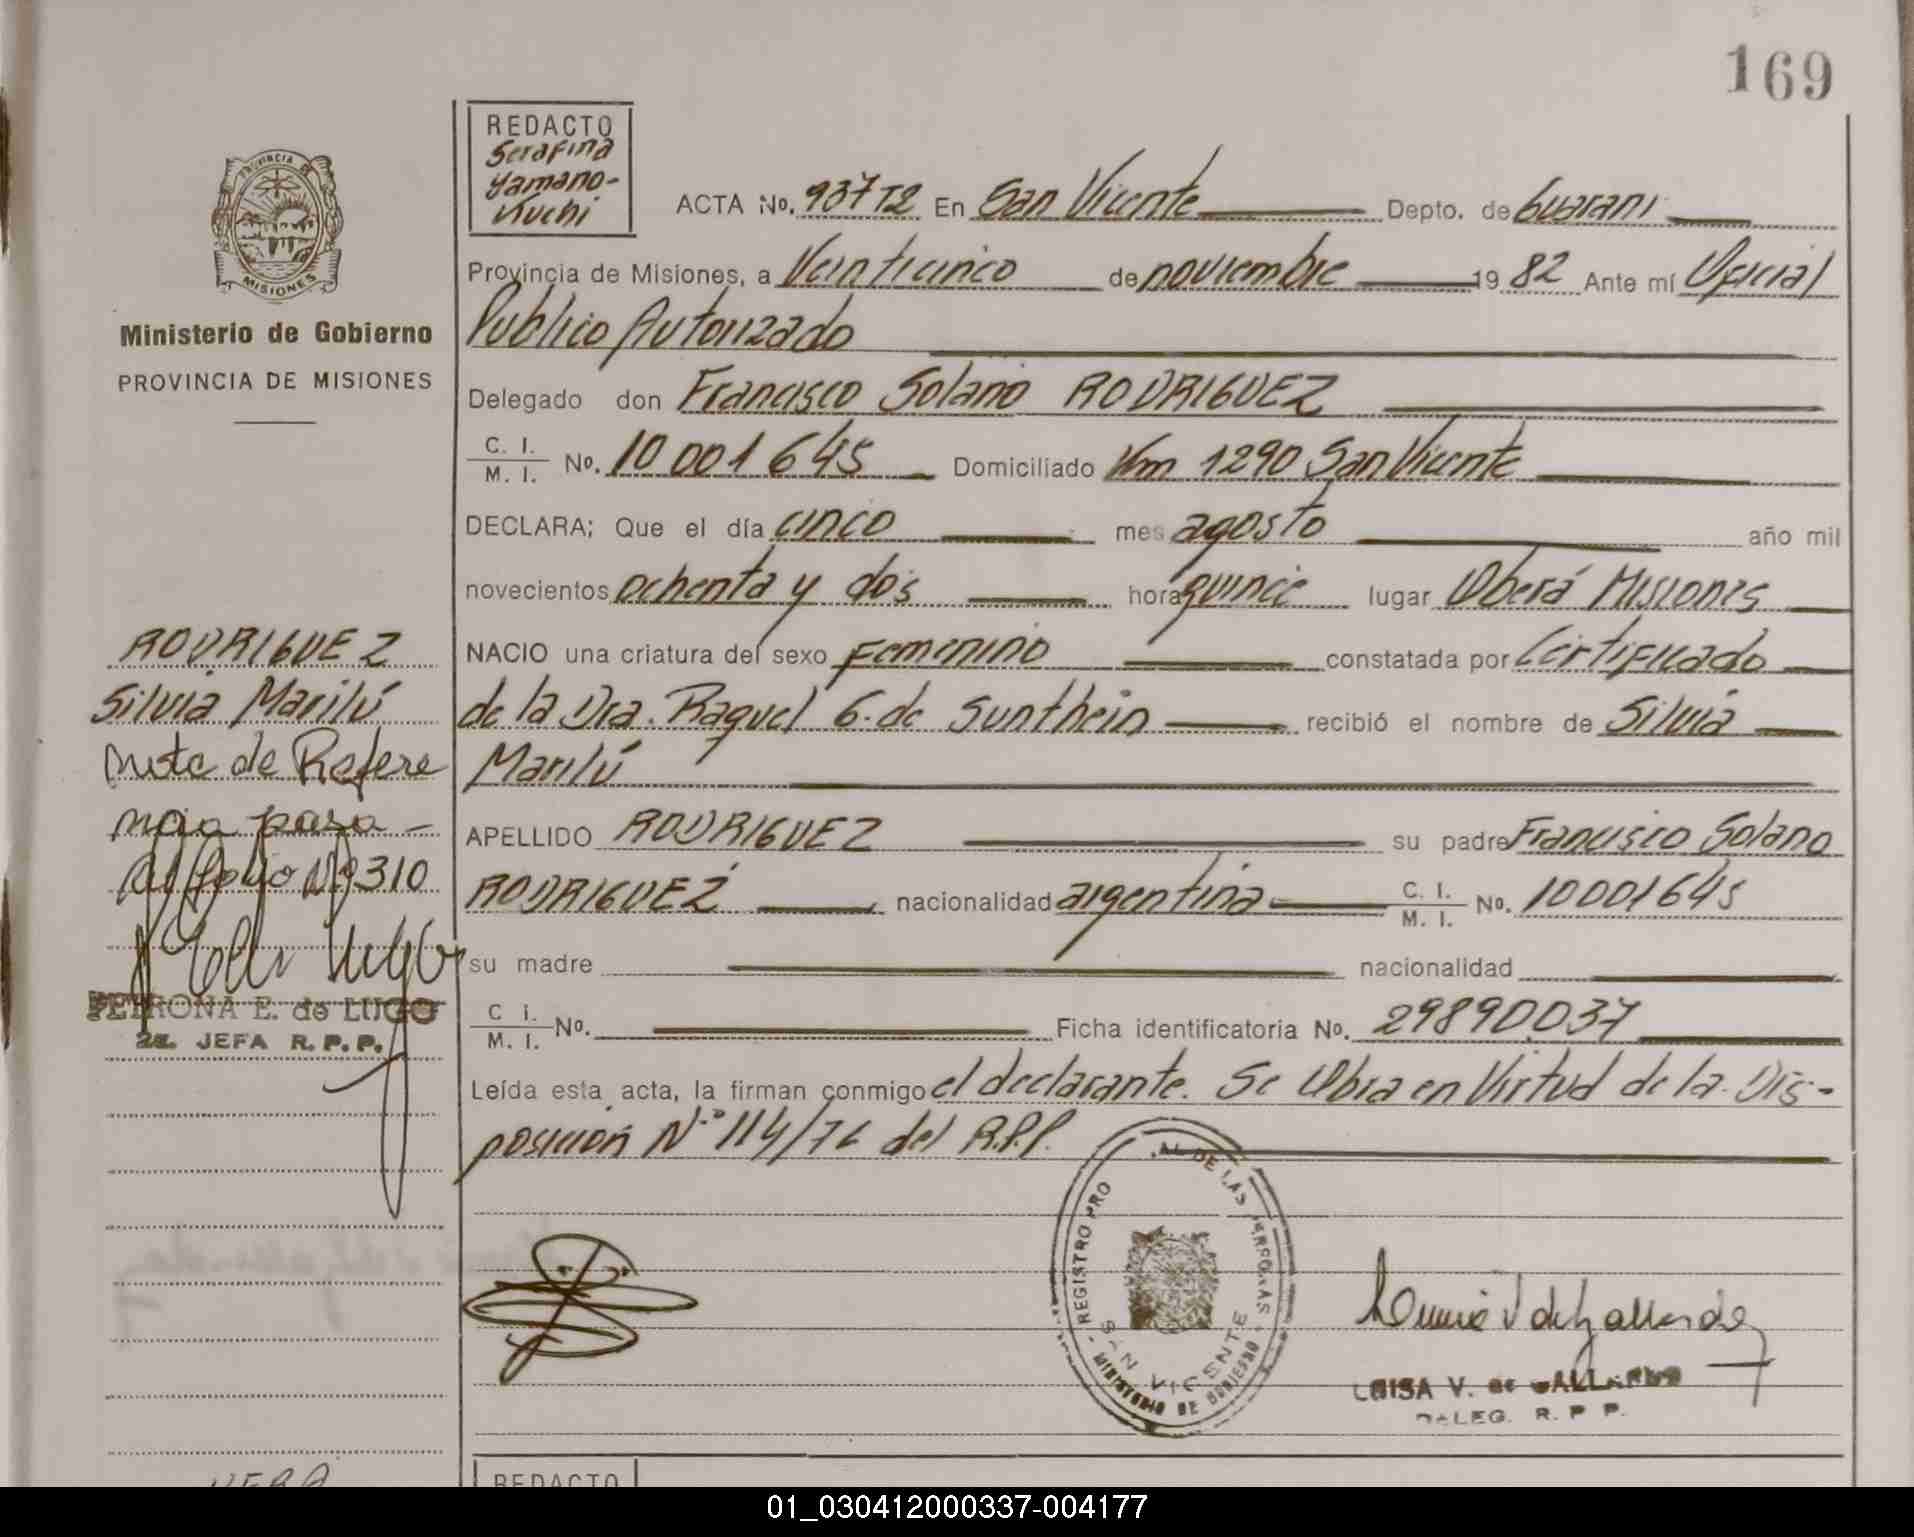 169
PROVINCIA DE
MISIONES
Ministerio de Gobierno
PROVINCIA DE MISIONES
RODRIGUEZ
Silvia Marilú
Nota de Refere
ncia pasa -
al folio Nº 310
PETRONA E. de LUGO
2a. JEFA R. P. P.
REDACTO
Serafina
Yamano-
Kuchi
ACTA No. 937T2 En San Vicente Depto. de Guarani
Provincia de Misiones, a Veinticinco de noviembre 19 82 Ante mí Oficial
Publico Autorizado
Delegado don Francisco Solano RODRIGUEZ
C. I.
M. I. No. 10 001 645 Domiciliado Km 1290 San Vicente
DECLARA; Que el día cinco mes agosto año mil
novecientos ochenta y dos hora quince lugar Oberá Misiones
NACIO una criatura del sexo Femenino constatada por Certificado
de la Dra. Raquel G. de Sunthein recibió el nombre de Silvia
Marilú
APELLIDO RODRIGUEZ su padre Francisco Solano
RODRIGUEZ nacionalidad argentina C. I.
M. I. No. 10001645
su madre nacionalidad
C i.
M. I. No. Ficha identificatoria No. 29890037
Leída esta acta, la firman conmigo el declarante. Se Obra en Virtud de la Dis-
posición N.º 114/76 del R.P.P.
REGISTRO PRO AL DE LAS PERSONAS
SAN VICENTE
MINISTERIO DE GOBIERNO
LUISA V. de GALLARDO
DELEG. R. P P.
VERA
REDACTO
01_030412000337-004177